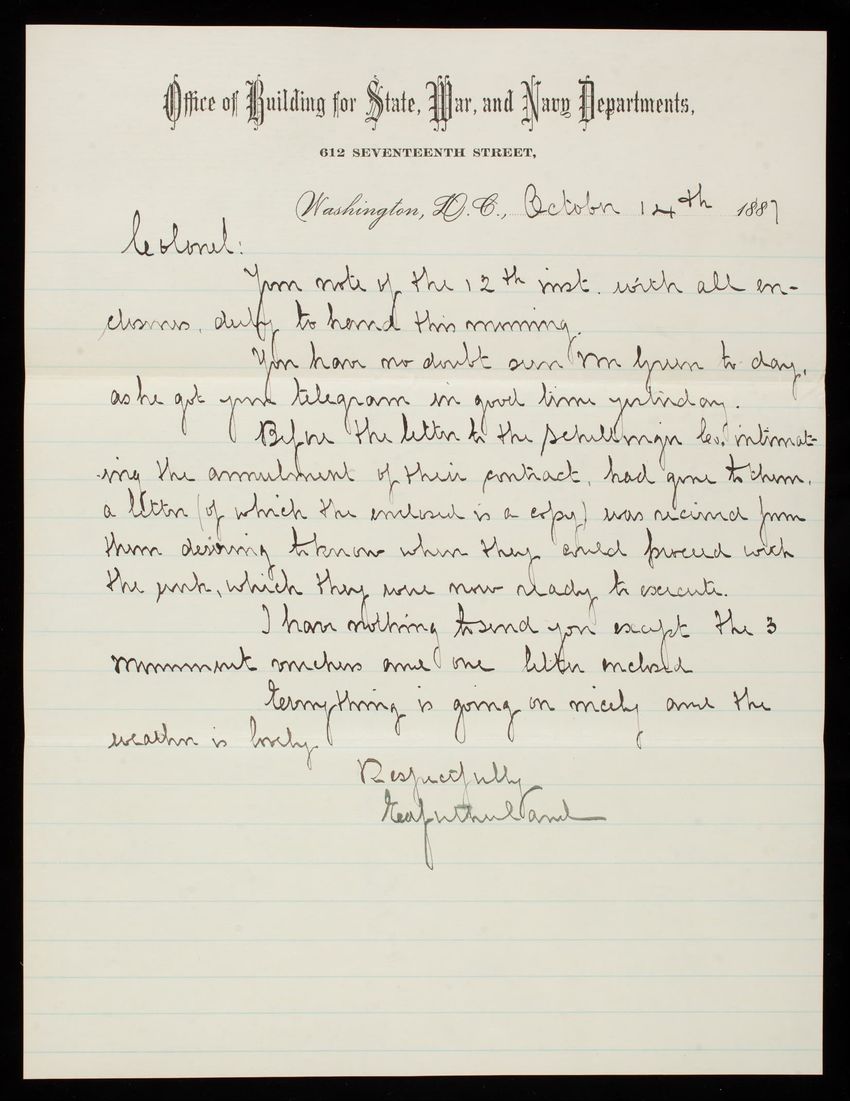 Office of Building for State, War, and Navy Departments,
612 SEVENTEENTH STREET,
Washington, D.C., October 14th 1887
Colonel:
Your note of the 12th inst. with all en-
closures, duly to hand this morning.
You have no doubt seen Mr Green to day,
as he got your telegram in good time yesterday.
Before the letter to the Schillinger Co. intimat-
ing the annulment of their contract, had gone to them,
a letter (of which the enclosed is a copy) was received from
them desiring to know when they could proceed with
the work, which they were now ready to execute.
I have nothing to send you except the 3
monument vouchers and one letter enclosed
Everything is going on nicely and the
weather is lovely
Respectfully